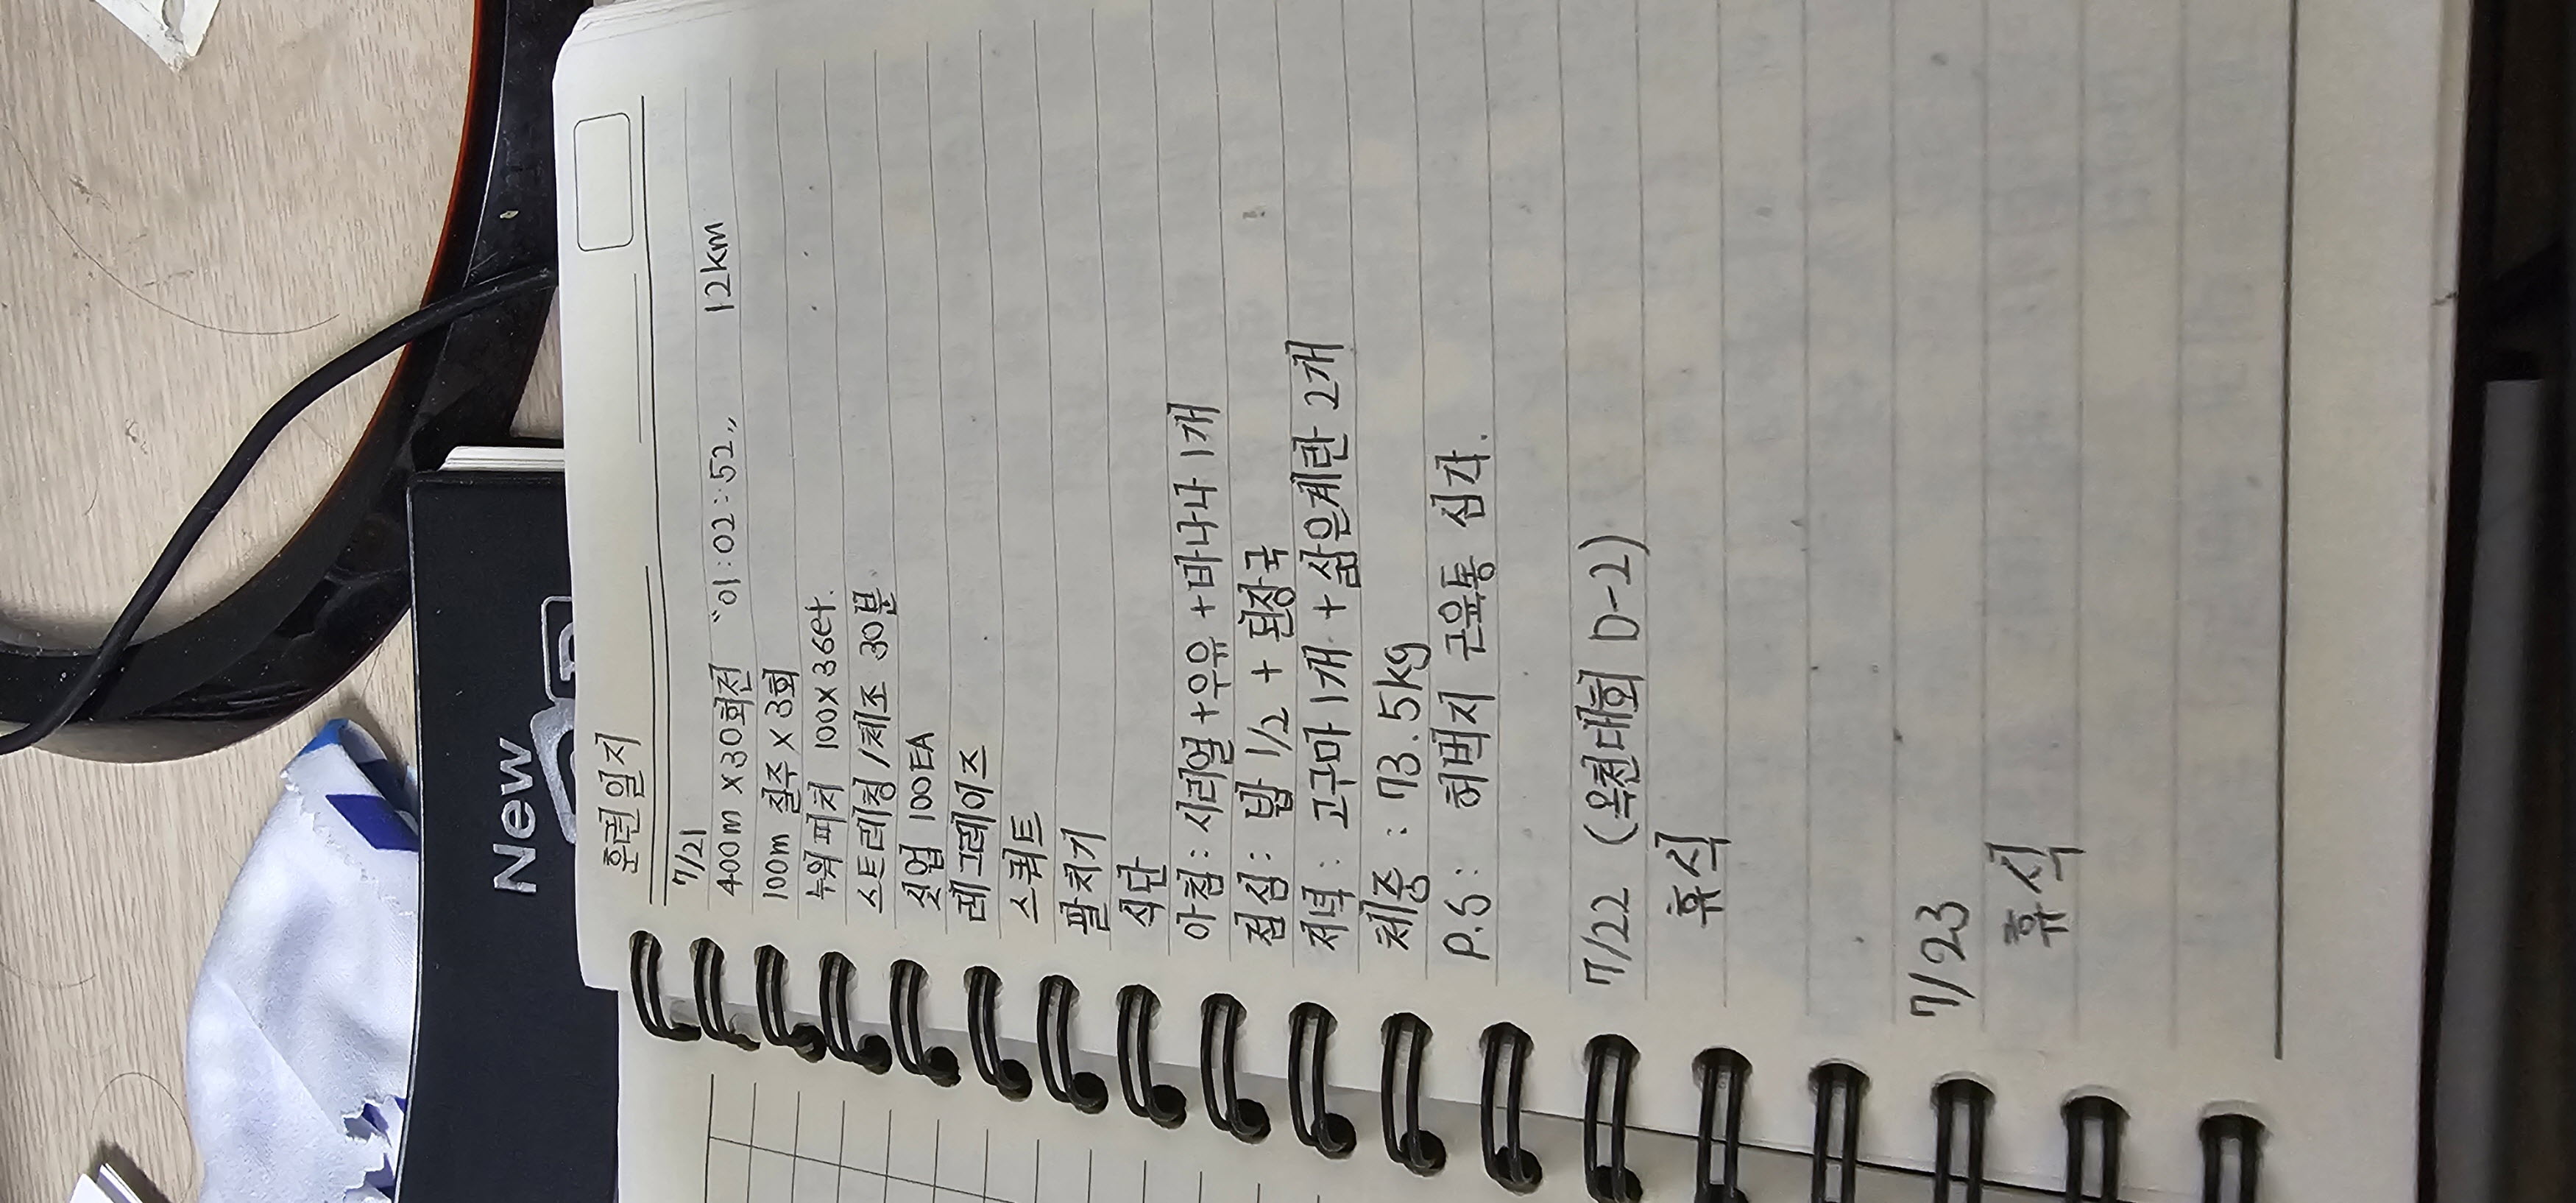 New
훈련일지
7/21
400m x30회전 "01:02:52,, 12km
100m 질주 x 3회
누워피치 100x3set.
스트레칭/체조 30분.
싯업 100EA
레그레이즈
스쿼트
팔치기
식단
아침: 시리얼+우유+바나나 1개
점심: 밥 1/2 + 된장국
저녁: 고구마 1개 + 삶은계란 2개
체중: 73.5kg
P.S: 허벅지 근육통 심각.
7/22 (옥천대회 D-2)
휴식
7/23
휴식